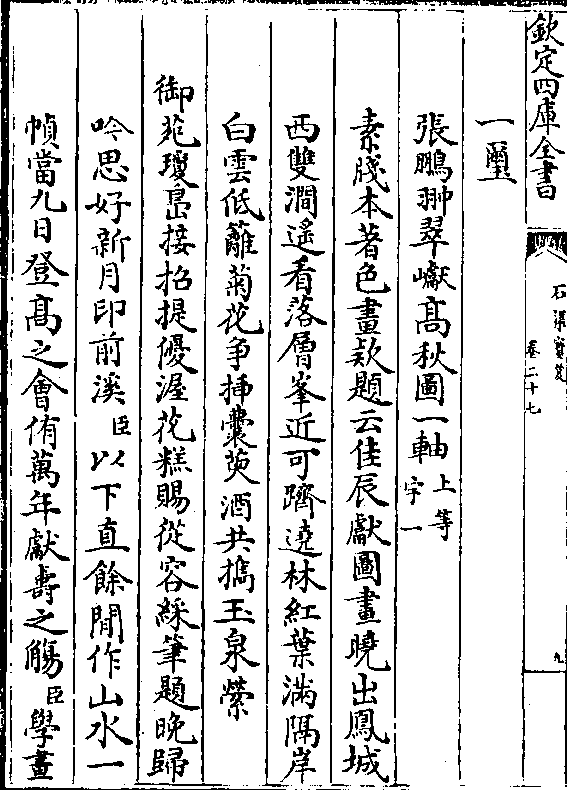 欽定四庫全書
石渠寶笈
卷二十七
九
一璽
張鵬翀翠巘髙秋圖一軸上等
宇一
素牋本著色畫欵題云佳辰獻圖畫曉出鳳城
西雙澗遙看落層峯近可躋遶林紅葉滿隔岸
白雲低籬菊花爭揷囊萸酒共携玉泉縈
御苑瓊島接招提優渥花糕賜從容綵筆題晩歸
吟思好新月印前溪臣以下直餘閒作山水一
幀當九日登髙之會侑萬年獻壽之觴臣學畫